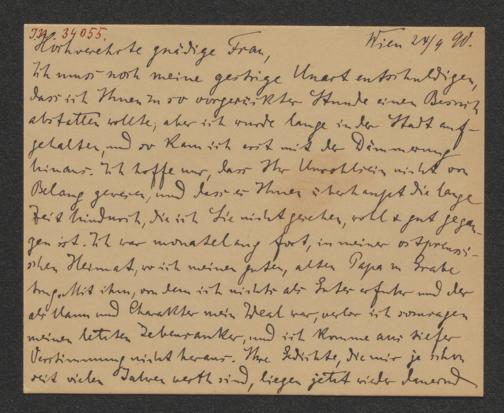 J.N. 34055.
Wien 24/9 90.
Hochverehrte gnädige Frau,
Ich muss noch meine gestrige Unart entschuldigen,
dass ich Ihnen zu so vorgerückter Stunde einen Besuch
abstatten wollte; aber ich wurde lange in der Stadt auf-
gehalten, und so kam ich erst mit der Dämmerung
hinaus. Ich hoffe nur, dass Ihr Unwohlsein nicht von
Belang gewesen, und dass es Ihnen überhaupt die lange
Zeit hindurch, die ich Sie nicht gesehen, wohl & gut gegan-
gen ist. Ich war monatelang fort, in meiner ostpreussi-
schen Heimat, wo ich meinen guten, alten Papa zu Grabe
trug. Mit ihm, von dem ich nichts als Gutes erfuhr und der
als Mann und Charakter mein Ideal war, verlor ich sozusagen
meinen letzten Lebensanker, und ich komme aus tiefer
Verstimmung nicht heraus. Ihre Gedichte, die mir ja schon
seit vielen Jahren werth sind, liegen jetzt wieder dauernd